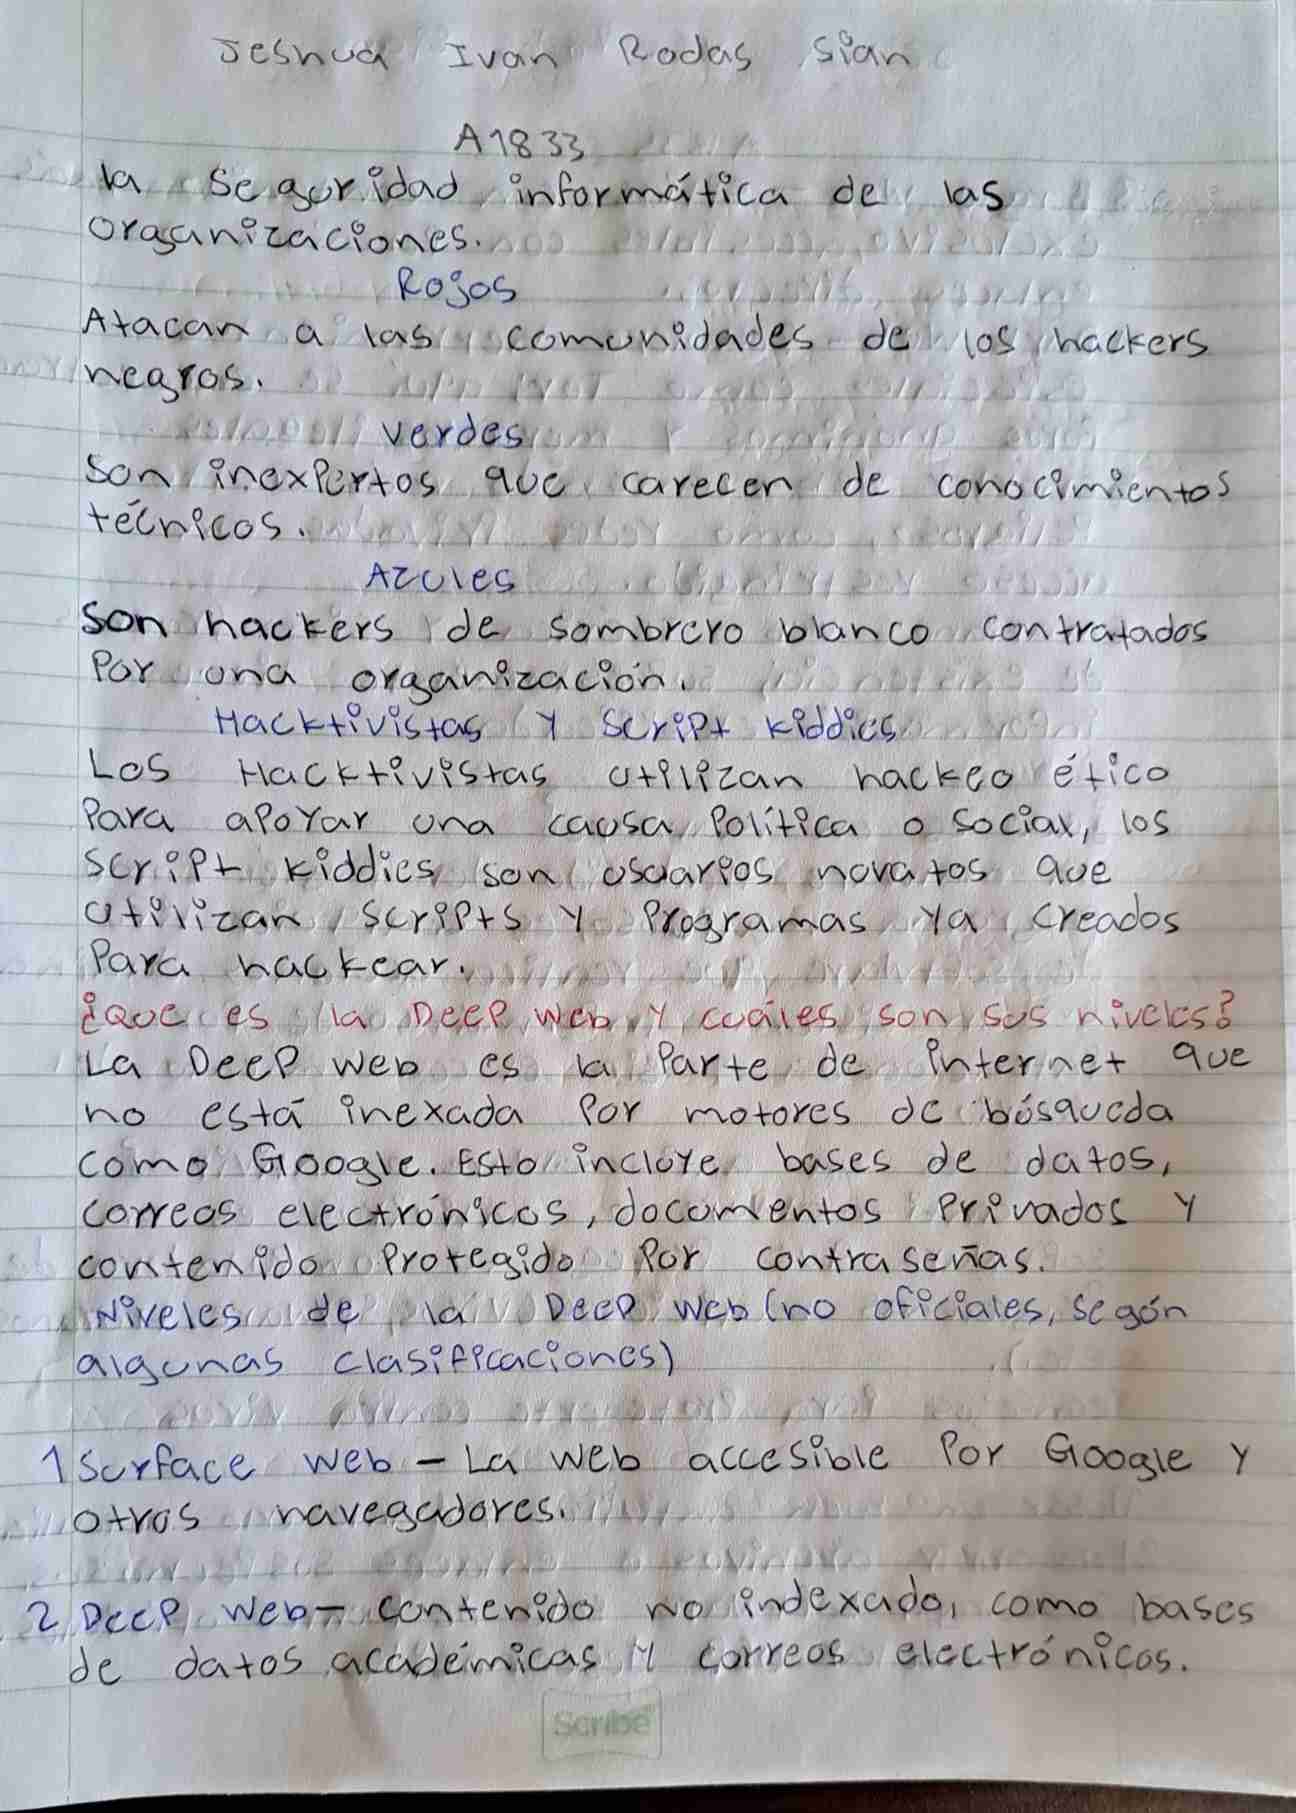 Jeshua Ivan Rodas Sian
A1833
la Seguridad informática de las
organizaciones.
Rojos
Atacan a las comunidades de los hackers
negros.
verdes
Son inexpertos que carecen de conocimientos
técnicos.
Azules
Son hackers de sombrero blanco contratados
Por una organización.
Hacktivistas y Script kiddies
Los Hacktivistas utilizan hackeo ético
Para apoyar una causa Política o social, los
script kiddies son usuarios novatos que
utilizan scripts y Programas ya creados
Para hackear.
¿Que es la Deep web y cuáles son sus niveles?
La Deep web es la Parte de internet que
no está inexada Por motores de búsqueda
como Google. Esto incluye bases de datos,
correos electrónicos, documentos Privados y
contenido Protegido Por contraseñas.
Niveles de la Deep web (no oficiales, según
algunas clasificaciones)
1 Surface web - La web accesible Por Google y
otros navegadores.
2 Deep web - contenido no indexado, como bases
de datos académicas y correos electrónicos.
Scribe